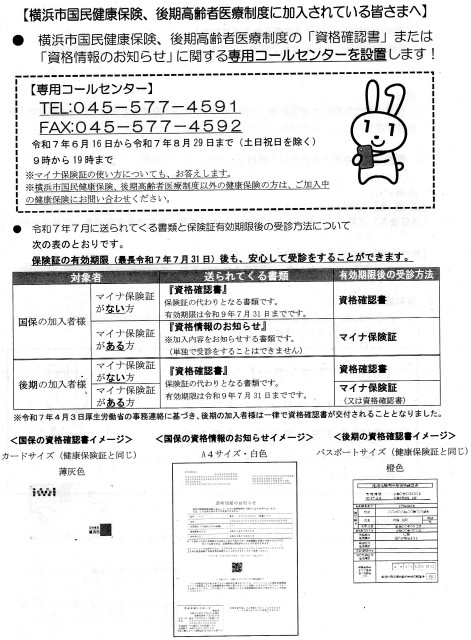 【横浜市国民健康保険、後期高齢者医療制度に加入されている皆さまへ】
● 横浜市国民健康保険、後期高齢者医療制度の「資格確認書」または
「資格情報のお知らせ」に関する専用コールセンターを設置します！
【専用コールセンター】
TEL:045-577-4591
FAX:045-577-4592
令和7年6月16日から令和7年8月29日まで（土日祝日を除く）
9時から19時まで
※マイナ保険証の使い方についても、お答えします。
※横浜市国民健康保険、後期高齢者医療制度以外の健康保険の方は、ご加入中
の健康保険にお問い合わせください。
● 令和7年7月に送られてくる書類と保険証有効期限後の受診方法について
次の表のとおりです。
保険証の有効期限（最長令和7年7月31日）後も、安心して受診をすることができます。
対象者 送られてくる書類 有効期限後の受診方法
国保の加入者様
マイナ保険証
がない方
『資格確認書』
保険証の代わりとなる書類です。
有効期限は令和9年7月31日までです。
資格確認書
マイナ保険証
がある方
『資格情報のお知らせ』
※加入内容をお知らせする書類です。
（単独で受診をすることはできません）
マイナ保険証
後期の加入者様
マイナ保険証
がない方
マイナ保険証
がある方
『資格確認書』
保険証の代わりとなる書類です。
有効期限は令和8年7月31日までです。
資格確認書
マイナ保険証
（又は資格確認書）
※令和7年4月3日厚生労働省の事務連絡に基づき、後期の加入者様は一律で資格確認書が交付されることとなりました。
＜国保の資格確認書イメージ＞
カードサイズ（健康保険証と同じ）
薄灰色
＜国保の資格情報のお知らせイメージ＞
A4サイズ・白色
資格情報のお知らせ
＜後期の資格確認書イメージ＞
パスポートサイズ（健康保険証と同じ）
橙色